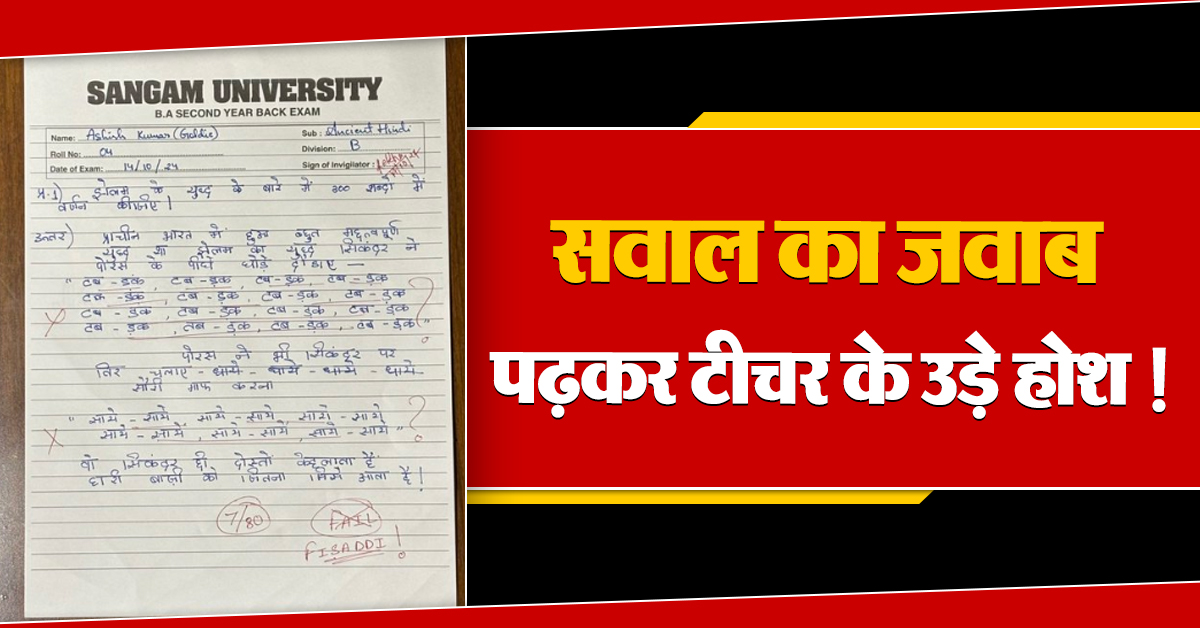 SANGAM UNIVERSITY
B.A SECOND YEAR BACK EXAM
Name: Ashish Kumar (Goldie)
Sub : Ancient Hindi
Roll No: 04
Division: B
Date of Exam: 14/10/24
Sign of Invigilator :
प्र.1) झेलम के युद्ध के बारे में 300 शब्दों में
वर्णन कीजिए।
उत्तर) प्राचीन भारत में हुआ बहुत महत्वपूर्ण
युद्ध था झेलम का युद्ध सिकंदर ने
पोरस के पीछे घोड़े दौड़ाए —
" टब - डक, टब - डक, टब - डक, टब - डक
टक - डक, टब - डक, टब - डक, टब - डक
टब - डक, टब - डक, टब - डक, टब - डक
टब - डक, तब - डक, टब - डक, टब - डक "
पोरस ने भी सिकंदर पर
तिर चलाए - धाये - धाये - धाये - धाये
सॉरी माफ करना
" साये - साये, साये - साये, साये - साये
साये - साये, साये - साये, साये - साये "
वो सिकंदर ही दोस्तों केहलाता है
हारी बाज़ी को जितना जिसे आता है!
7/80
FAIL
FISADDI!
सवाल का जवाब
पढ़कर टीचर के उड़े होश !